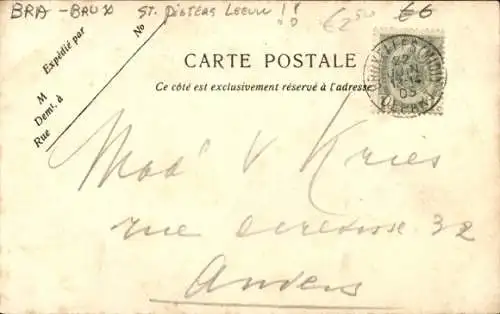 BRA - BRUX ST. PIETERS LEEUW !! €2,50 €6
Expédié par
No
M
Demt. à
Rue
CARTE POSTALE
Ce côté est exclusivement réservé à l'adresse
BRUXELLES
DEPART
Mad' V Kries
rue 32
Anvers